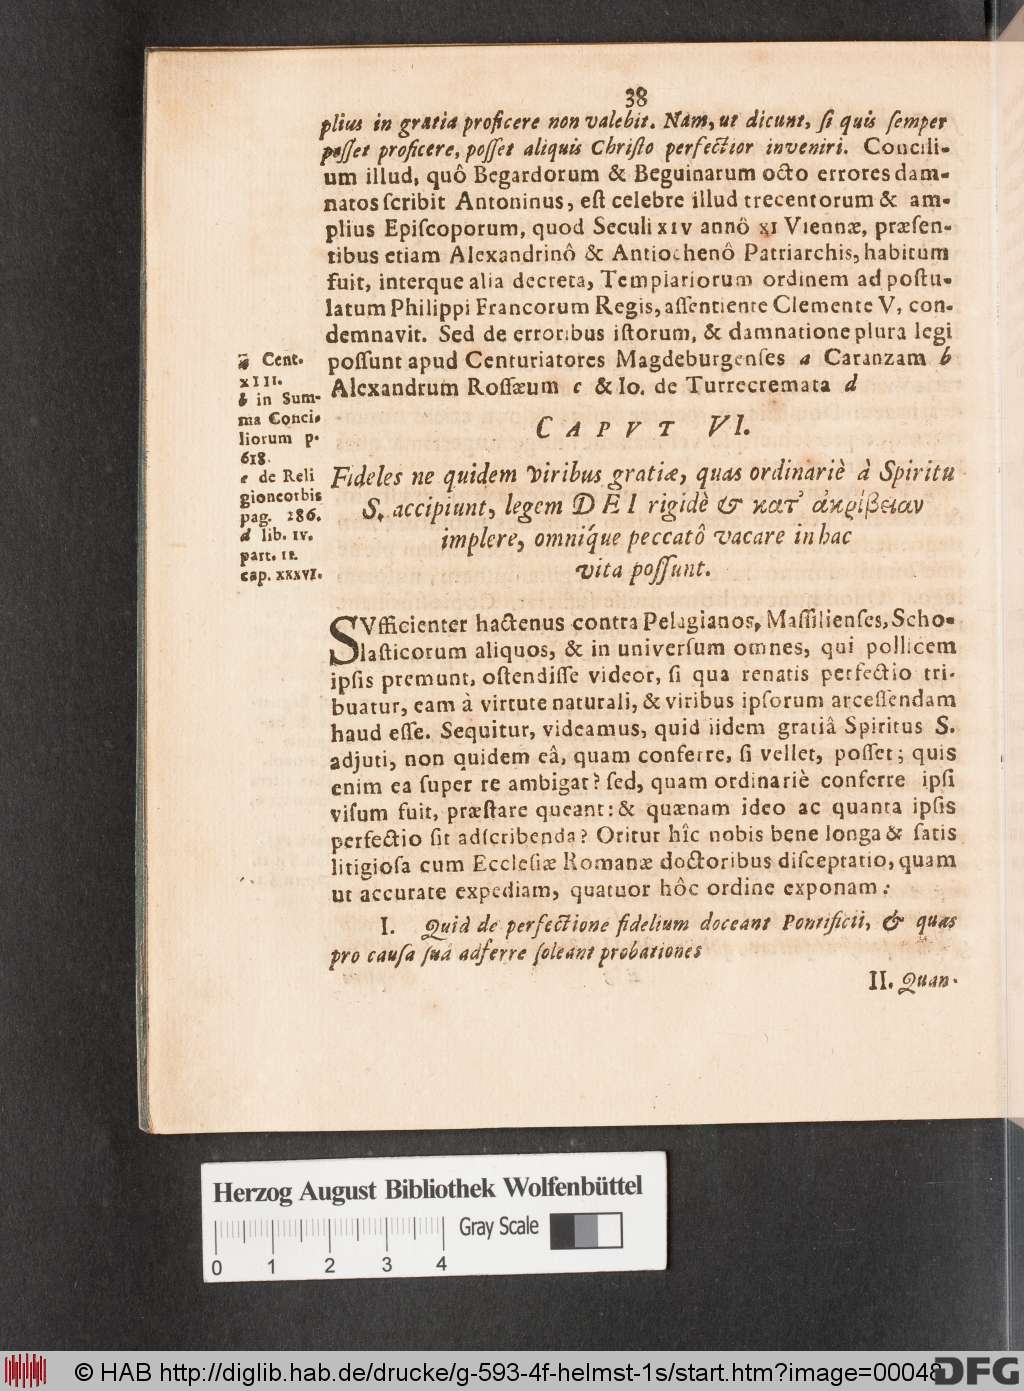 38
plius in gratia proficere non valebit. Nam, ut dicunt, ſi quis ſemper
poſſet proficere, poſſet aliquis Chriſto perfectior inveniri. Concili-
um illud, quô Begardorum & Beguinarum octo errores dam-
natos ſcribit Antoninus, eſt celebre illud trecentorum & am-
plius Epiſcoporum, quod Seculi XIV annô XI Viennæ, præſen-
tibus etiam Alexandrinô & Antiochenô Patriarchis, habitum
fuit, interque alia decreta, Templariorum ordinem ad poſtu-
latum Philippi Francorum Regis, aſſentiente Clemente V, con-
demnavit. Sed de erroribus iſtorum, & damnatione plura legi
poſſunt apud Centuriatores Magdeburgenſes a Caranzam b
Alexandrum Roſſæum c & Io. de Turrecremata d
a Cent.
XIII.
b in Sum-
ma Conci-
liorum p.
618.
c de Reli
gioneorbis
pag. 286.
d lib. IV.
part. II.
cap. XXXVI.
CAPVT VI.
Fideles ne quidem viribus gratiæ, quas ordinariè à Spiritu
S. accipiunt, legem DEI rigidè & κατ' ἀκρίβειαν
implere, omnique peccatô vacare in hac
vita poſſunt.
SVfficienter hactenus contra Pelagianos, Maſſilienſes, Scho-
laſticorum aliquos, & in univerſum omnes, qui pollicem
ipſis premunt, oſtendiſſe videor, ſi qua renatis perfectio tri-
buatur, eam à virtute naturali, & viribus ipſorum arceſſendam
haud eſſe. Sequitur, videamus, quid iidem gratiâ Spiritus S.
adjuti, non quidem eâ, quam conferre, ſi vellet, poſſet; quis
enim ea ſuper re ambigat? ſed, quam ordinariè conferre ipſi
viſum fuit, præſtare queant: & quænam ideo ac quanta ipſis
perfectio ſit adſcribenda? Oritur hîc nobis bene longa & ſatis
litigioſa cum Eccleſiæ Romanæ doctoribus diſceptatio, quam
ut accurate expediam, quatuor hôc ordine exponam:
I. Quid de perfectione fidelium doceant Pontificii, & quas
pro cauſa ſua adferre ſoleant probationes
II. Quan-
Herzog August Bibliothek Wolfenbüttel
Gray Scale
0 1 2 3 4
© HAB http://diglib.hab.de/drucke/g-593-4f-helmst-1s/start.htm?image=00048
DFG